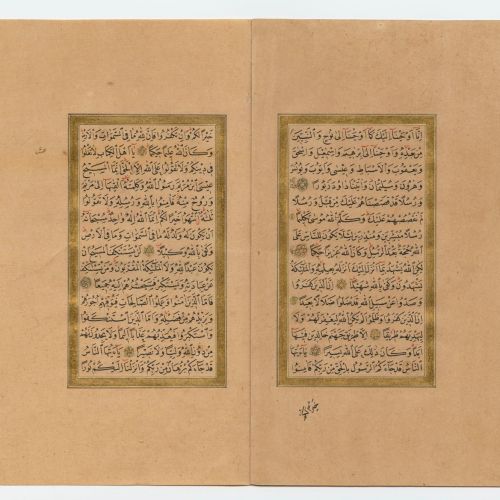 اِنَّا اَوْحَيْنَا اِلَيْكَ كَمَا اَوْحَيْنَا اِلٰى نُوحٍ وَالنَّبِيّنَ
مِنْ بَعْدِهِ وَاَوْحَيْنَا اِلٰى اِبْرٰهِيمَ وَاِسْمٰعِيلَ وَاِسْحٰقَ
وَيَعْقُوبَ وَالْاَسْبَاطِ وَعِيسٰى وَاَيُّوبَ وَيُونُسَ
وَهٰرُونَ وَسُلَيْمَانَ وَاٰتَيْنَا دَاوُدَ زَبُورًا
وَرُسُلًا قَدْ قَصَصْنَاهُمْ عَلَيْكَ مِنْ قَبْلُ وَرُسُلًا
لَمْ نَقْصُصْهُمْ عَلَيْكَ وَكَلَّمَ اللّٰهُ مُوسٰى تَكْلِيمًا
رُسُلًا مُبَشِّرِينَ وَمُنْذِرِينَ لِئَلَّا يَكُونَ لِلنَّاسِ عَلَى
اللّٰهِ حُجَّةٌ بَعْدَ الرُّسُلِ وَكَانَ اللّٰهُ عَزِيزًا حَكِيمًا
لٰكِنِ اللّٰهُ يَشْهَدُ بِمَا اَنْزَلَ اِلَيْكَ اَنْزَلَهُ بِعِلْمِهِ وَالْمَلٰئِكَةُ
يَشْهَدُونَ وَكَفٰى بِاللّٰهِ شَهِيدًا اِنَّ الَّذِينَ كَفَرُوا
وَصَدُّوا عَنْ سَبِيلِ اللّٰهِ قَدْ ضَلُّوا ضَلَالًا بَعِيدًا
اِنَّ الَّذِينَ كَفَرُوا وَظَلَمُوا لَمْ يَكُنِ اللّٰهُ لِيَغْفِرَ لَهُمْ وَلَا
لِيَهْدِيَهُمْ طَرِيقًا اِلَّا طَرِيقَ جَهَنَّمَ خَالِدِينَ فِيهَا
اَبَدًا وَكَانَ ذٰلِكَ عَلَى اللّٰهِ يَسِيرًا يَا اَيُّهَا
النَّاسُ قَدْ جَاءَكُمُ الرَّسُولُ بِالْحَقِّ مِنْ رَبِّكُمْ فَاٰمِنُوا
خَيْرًا لَكُمْ وَاِنْ تَكْفُرُوا فَاِنَّ لِلّٰهِ مَا فِي السَّمٰوَاتِ وَالْاَرْضِ
وَكَانَ اللّٰهُ عَلِيمًا حَكِيمًا يَا اَهْلَ الْكِتَابِ لَا تَغْلُوا
فِي دِينِكُمْ وَلَا تَقُولُوا عَلَى اللّٰهِ اِلَّا الْحَقَّ اِنَّمَا الْمَسِيحُ
عِيسَى ابْنُ مَرْيَمَ رَسُولُ اللّٰهِ وَكَلِمَتُهُ اَلْقٰيهَا اِلٰى مَرْيَمَ
وَرُوحٌ مِنْهُ فَاٰمِنُوا بِاللّٰهِ وَرُسُلِهِ وَلَا تَقُولُوا
ثَلٰثَةٌ اِنْتَهُوا خَيْرًا لَكُمْ اِنَّمَا اللّٰهُ اِلٰهٌ وَاحِدٌ سُبْحَانَهُ
اَنْ يَكُونَ لَهُ وَلَدٌ لَهُ مَا فِي السَّمٰوَاتِ وَمَا فِي الْاَرْضِ
وَكَفٰى بِاللّٰهِ وَكِيلًا لَنْ يَسْتَنْكِفَ الْمَسِيحُ اَنْ
يَكُونَ عَبْدًا لِلّٰهِ وَلَا الْمَلٰئِكَةُ الْمُقَرَّبُونَ وَمَنْ يَسْتَنْكِفْ
عَنْ عِبَادَتِهِ وَيَسْتَكْبِرْ فَسَيَحْشُرُهُمْ اِلَيْهِ جَمِيعًا
فَاَمَّا الَّذِينَ اٰمَنُوا وَعَمِلُوا الصَّالِحَاتِ فَيُوَفِّيهِمْ اُجُورَهُمْ
وَيَزِيدُهُمْ مِنْ فَضْلِهِ وَاَمَّا الَّذِينَ اسْتَنْكَفُوا
وَاسْتَكْبَرُوا فَيُعَذِّبُهُمْ عَذَابًا اَلِيمًا وَلَا يَجِدُونَ لَهُمْ
مِنْ دُونِ اللّٰهِ وَلِيًّا وَلَا نَصِيرًا يَا اَيُّهَا النَّاسُ
قَدْ جَاءَكُمْ بُرْهَانٌ مِنْ رَبِّكُمْ وَاَنْزَلْنَا اِلَيْكُمْ نُورًا